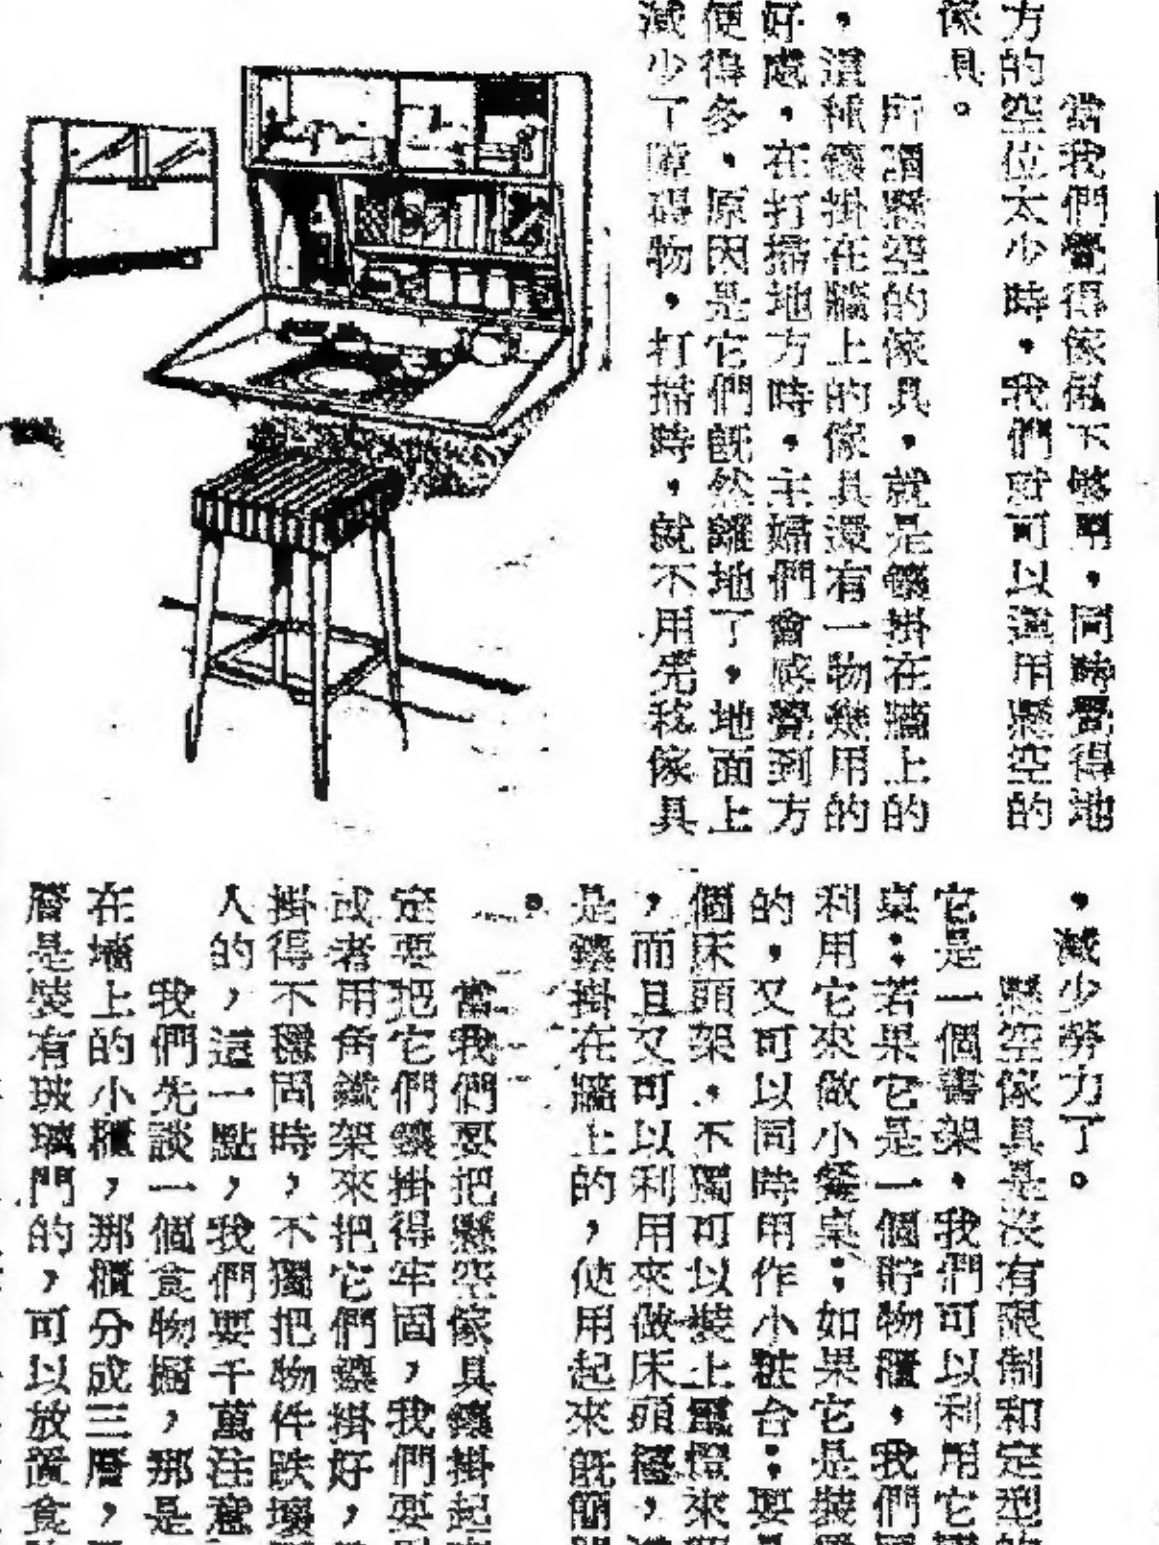 當我們覺得傢俬不夠用，同時覺得地
方的空位太少時，我們就可以運用懸空的
傢具。
所謂懸空的傢具，就是鑲掛在牆上的
，這種鑲掛在牆上的傢具還有一物幾用的
好處，在打掃地方時，主婦們會感覺到方
便得多，原因是它們既然離地了，地面上
減少了障碍物，打掃時，就不用先移傢具
，減少勞力了。
懸空傢具是沒有限制和定型
它是一個書架，我們可以利用它
桌；若果它是一個貯物櫃，我們
利用它來做小餐桌；如果它是裝
的，又可以同時用作小粧台；要
個床頭架，不獨可以裝上電燈來
，而且又可以利用來做床頭櫃，
是鑲掛在牆上的，使用起來既簡
。
當我們要把懸空傢具鑲掛起
定要把它們鑲掛得牢固，我們要
或者用角鐵架來把它們鑲掛好，
掛得不穩固時，不獨把物件跌壞
人的，這一點，我們要千萬注意
我們先談一個食物櫥，那是
在墻上的小櫃，那櫃分成三層，
層是裝有玻璃門的，可以放置食